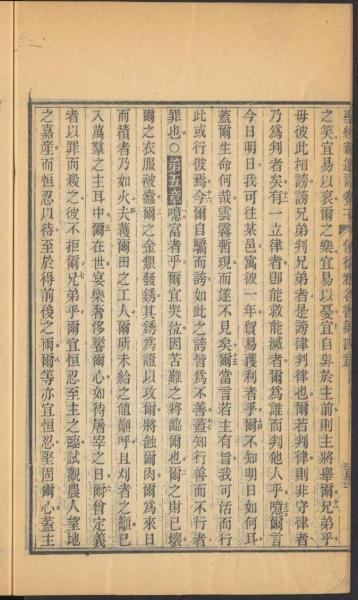 聖經新遺詔卷二 使徒雅各書第四章
之笑宜易以哀爾之樂宜易以憂宜自卑於主前則主將舉爾兄弟乎
毋彼此相謗謗兄弟判兄弟者是謗律判律也爾若判律則非守律者
乃為判者矣有一立律者即能救能滅者爾為誰而判他人乎噫爾言
今日明日我可往某邑寓彼一年貿易獲利者乎爾不知明日如何耳
蓋爾生命何哉雲霧暫現而遂不見矣爾當言若主有旨我可活而行
此或行彼焉今爾自驕而謗如此之謗皆為不善蓋知行善而不行者
罪也○第五章噫富者乎爾宜哭泣因苦難之將臨爾也爾之財已壞
爾之衣服被蠹爾之金銀發銹其銹為證以攻爾將蝕爾肉爾為來日
而積者乃如火夫穫爾田之工人爾所未給之値籲呼且刈者之籲已
入萬羣之主耳中爾在世宴樂奢侈饜爾心如待屠宰之日爾曾定義
者以罪而殺之彼不拒爾兄弟乎爾宜恒忍至主之臨試觀農人望地
之嘉産而恒忍以待至於得前後之雨爾等亦宜恒忍堅固爾心蓋主